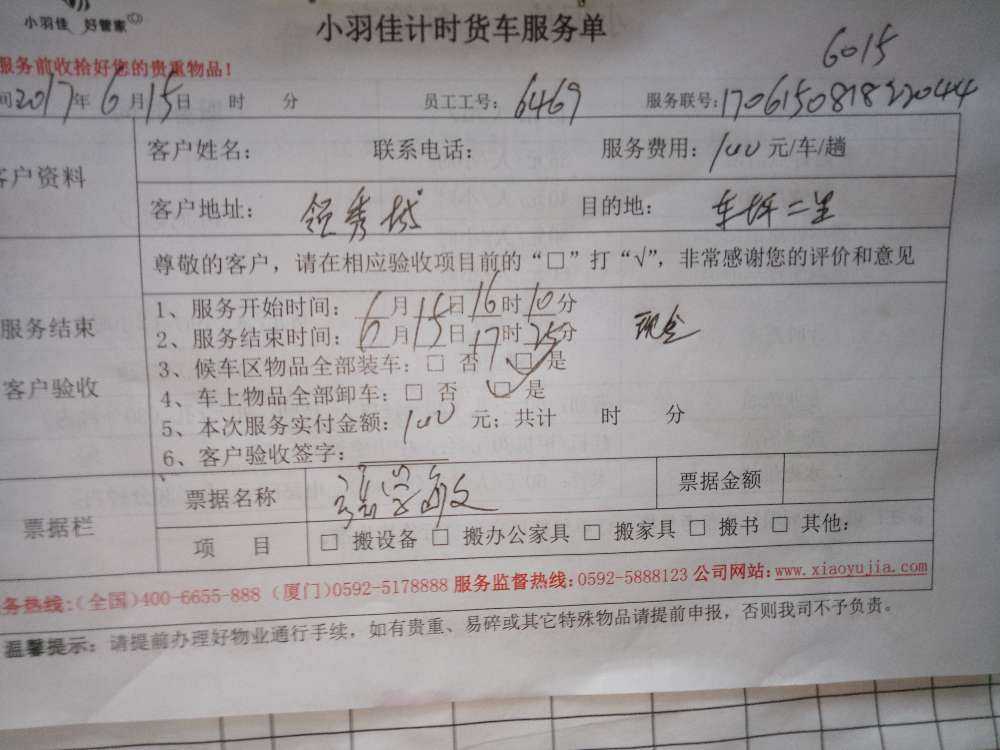 小羽佳 好管家
小羽佳计时货车服务单
6015
服务前收拾好您的贵重物品!
间2017年6月15日 时 分 员工工号: 6469 服务联号:170615081822044
客户资料
客户姓名: 联系电话: 服务费用:100元/车/趟
客户地址: 领秀城 目的地: 车坪二里
尊敬的客户，请在相应验收项目前的“□”打“√”，非常感谢您的评价和意见
服务结束
客户验收
1、服务开始时间: 6月15日16时10分
2、服务结束时间: 6月15日17时25分 现金
3、候车区物品全部装车: □ 否 □ 是
4、车上物品全部卸车: □ 否 □ 是
5、本次服务实付金额: 100 元; 共计 时 分
6、客户验收签字:
票据栏
票据名称 票据金额
项 目 □ 搬设备 □ 搬办公家具 □ 搬家具 □ 搬书 □ 其他:
务热线:(全国)400-6655-888 (厦门)0592-5178888 服务监督热线:0592-5888123 公司网站:www.xiaoyujia.com
温馨提示: 请提前办理好物业通行手续，如有贵重、易碎或其它特殊物品请提前申报，否则我司不予负责。